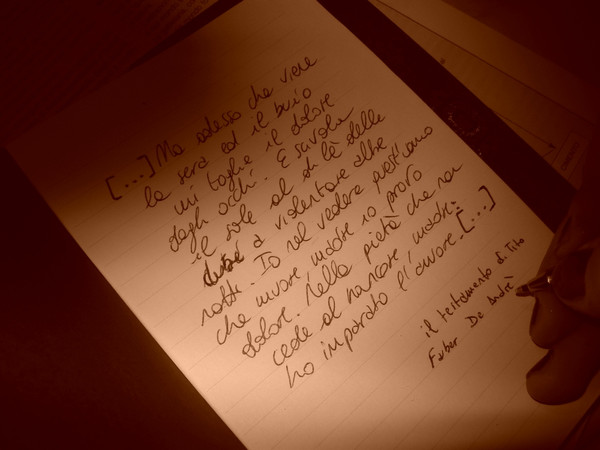 [...] Ma adesso che viene
la sera ed il buio
mi toglie il dolore
dagli occhi. E scivola
il sole al di là delle
dune a violentare altre
notti. Io nel vedere quest'uomo
che muore, madre io provo
dolore. Nella pietà che non
cede al rancore, madre.
ho imparato l'amore. [...]
il testamento di Tito
Faber De Andrè